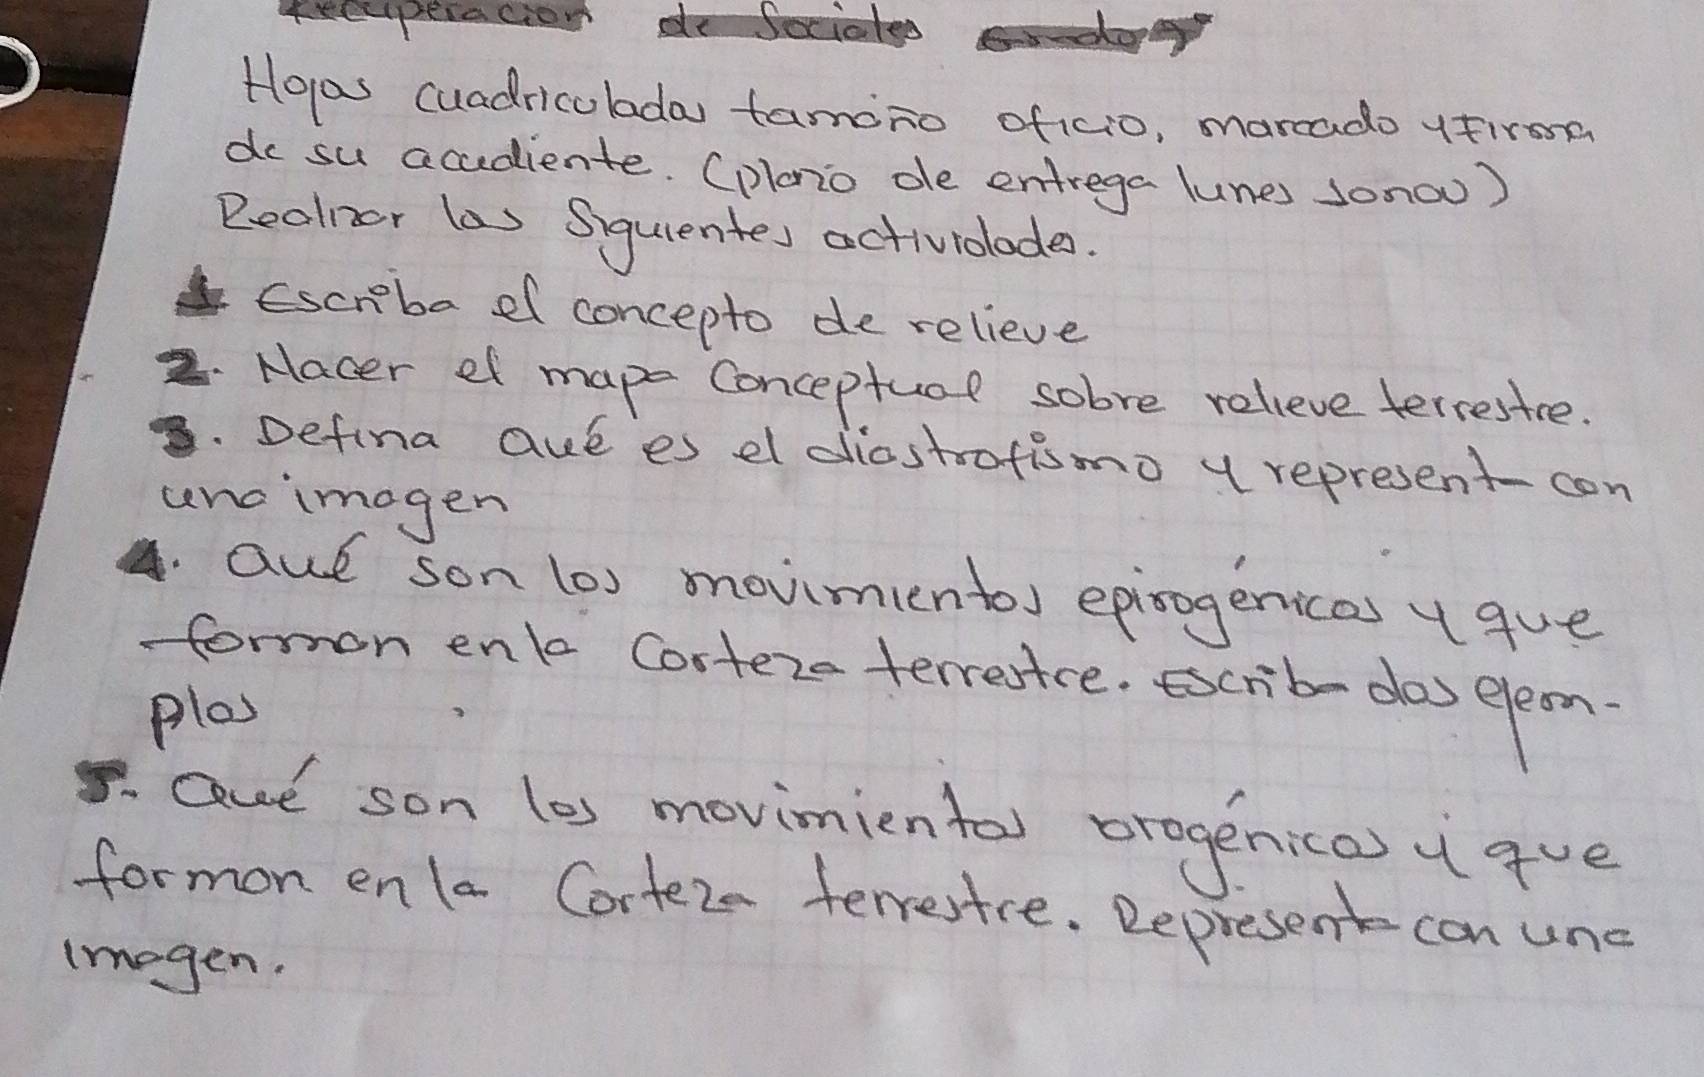 Recuperacion de Sociales Grado 7°
Hojas cuadriculadas tamaño oficio, marcado y firma
de su acudiente. (plazo de entrega lunes
Realizar las Siguientes actividades.
1. Escriba el concepto de relieve
2. Hacer el mapa Conceptual sobre relieve terrestre.
3. Defina Qué es el diastrofismo y representa con
una imagen
4. Qué son los movimientos epirogénicos y que
forman en la Corteza terrestre. Escriba dos ejem-
plos
5. Qué son los movimientos orogénicos y que
forman en la Corteza terrestre. Representa con una
imagen.